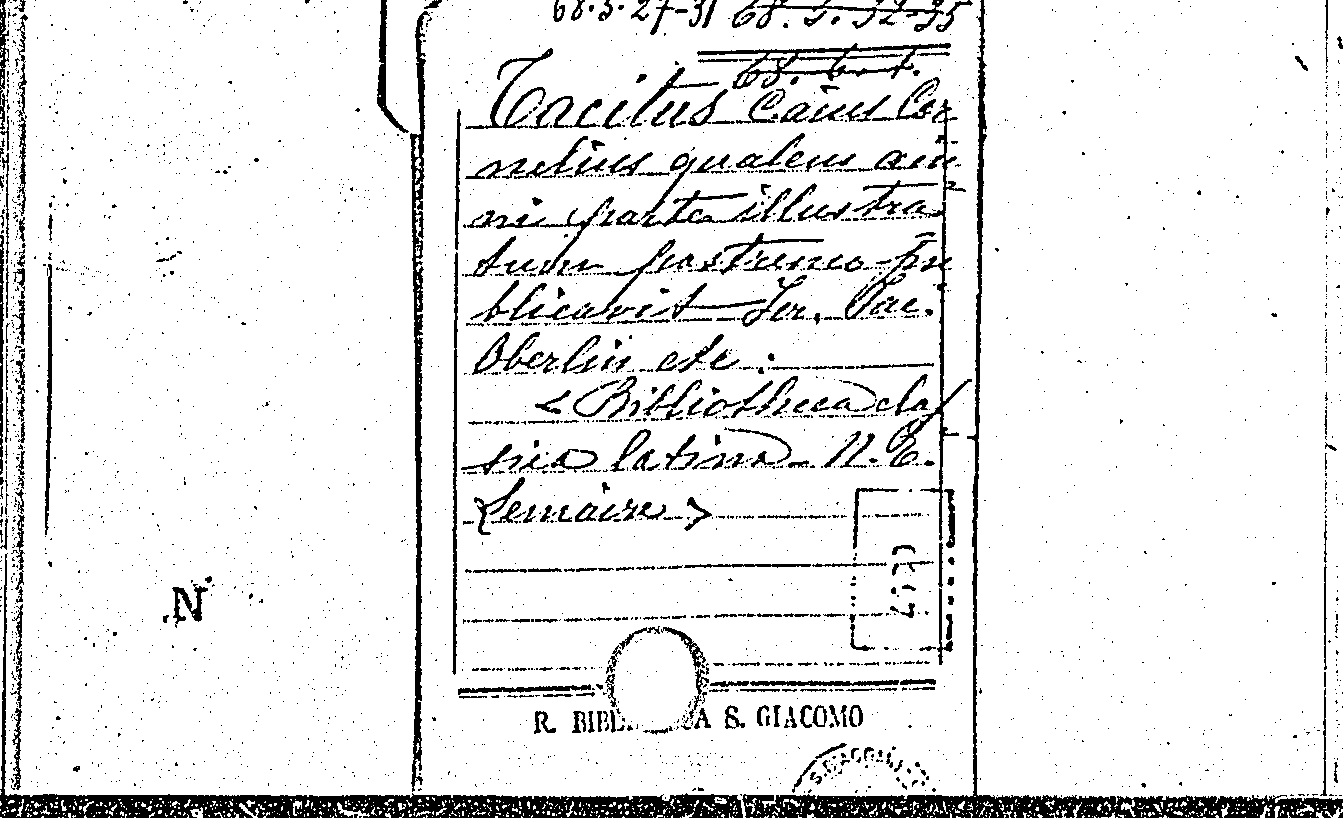 68.5.27-31 68.5.32-35
68.6.1.
Tacitus Caius Cor
nelius qualem om
ni parte illustra
tum postremo pu
blicavit Jer. Jac.
Oberlin etc:
< Bibliotheca clas
sica latina - N.E.
Lemaire >
N
R. BIBL A S. GIACOMO